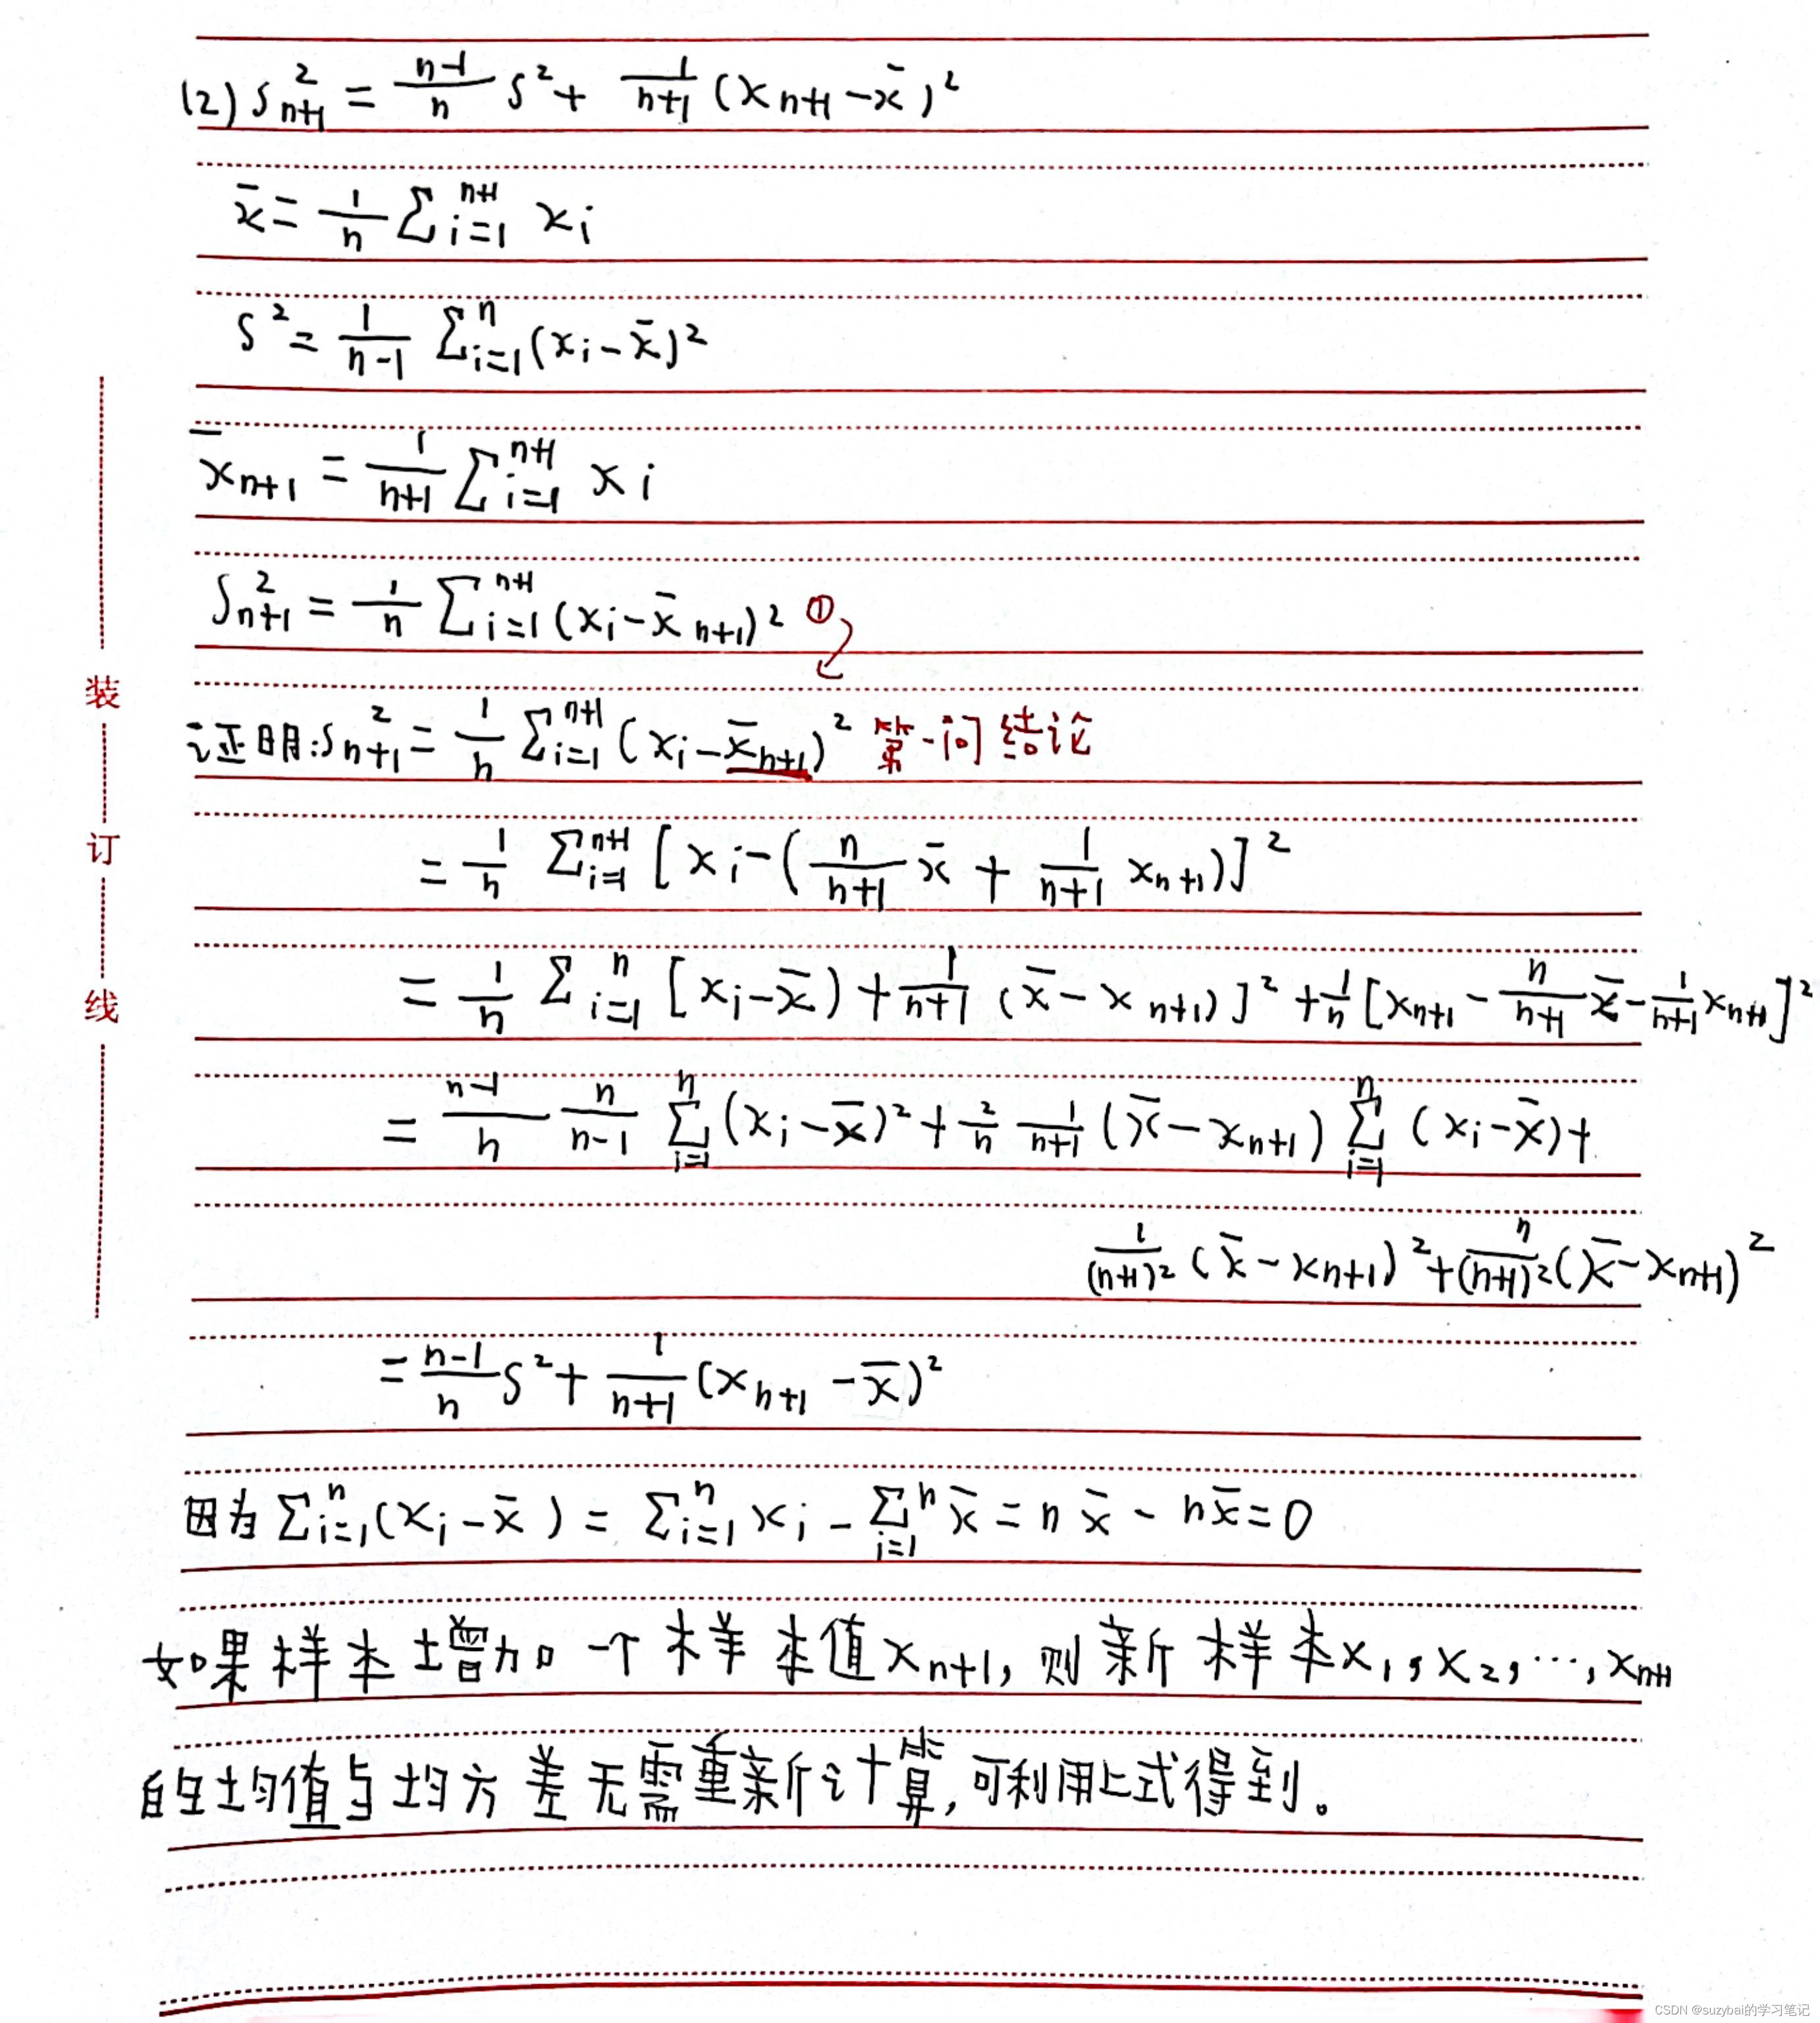 (2) S²ₙ₊₁ = \frac{n-1}{n} S² + \frac{1}{n+1} (xₙ₊₁ - x̄)²
x̄ = \frac{1}{n} Σ_{i=1}^{n+1} xᵢ
S² = \frac{1}{n-1} Σ_{i=1}^{n} (xᵢ - x̄)²
x̄ₙ₊₁ = \frac{1}{n+1} Σ_{i=1}^{n+1} xᵢ
S²ₙ₊₁ = \frac{1}{n} Σ_{i=1}^{n+1} (xᵢ - x̄ₙ₊₁)² ①
证明: S²ₙ₊₁ = \frac{1}{n} Σ_{i=1}^{n+1} (xᵢ - x̄ₙ₊₁)² 第一问结论
= \frac{1}{n} Σ_{i=1}^{n+1} [xᵢ - (\frac{n}{n+1} x̄ + \frac{1}{n+1} xₙ₊₁)]²
= \frac{1}{n} Σ_{i=1}^{n} [xᵢ - x̄) + \frac{1}{n+1} (x̄ - xₙ₊₁)]² + \frac{1}{n} [xₙ₊₁ - \frac{n}{n+1} x̄ - \frac{1}{n+1} xₙ₊₁]²
= \frac{n-1}{n} \frac{n}{n-1} Σ_{i=1}^{n} (xᵢ - x̄)² + \frac{2}{n} \frac{1}{n+1} (x̄ - xₙ₊₁) Σ_{i=1}^{n} (xᵢ - x̄) +
\frac{1}{(n+1)²} (x̄ - xₙ₊₁)² + \frac{n}{(n+1)²} (x̄ - xₙ₊₁)²
= \frac{n-1}{n} S² + \frac{1}{n+1} (xₙ₊₁ - x̄)²
因为 Σ_{i=1}^{n} (xᵢ - x̄) = Σ_{i=1}^{n} xᵢ - Σ_{i=1}^{n} x̄ = n x̄ - n x̄ = 0
如果样本增加一个样本值 xₙ₊₁, 则新样本 x₁, x₂, …, xₙ₊₁
的均值与均方差无需重新计算, 可利用上式得到。
装
订
线
CSDN @suzybai的学习笔记